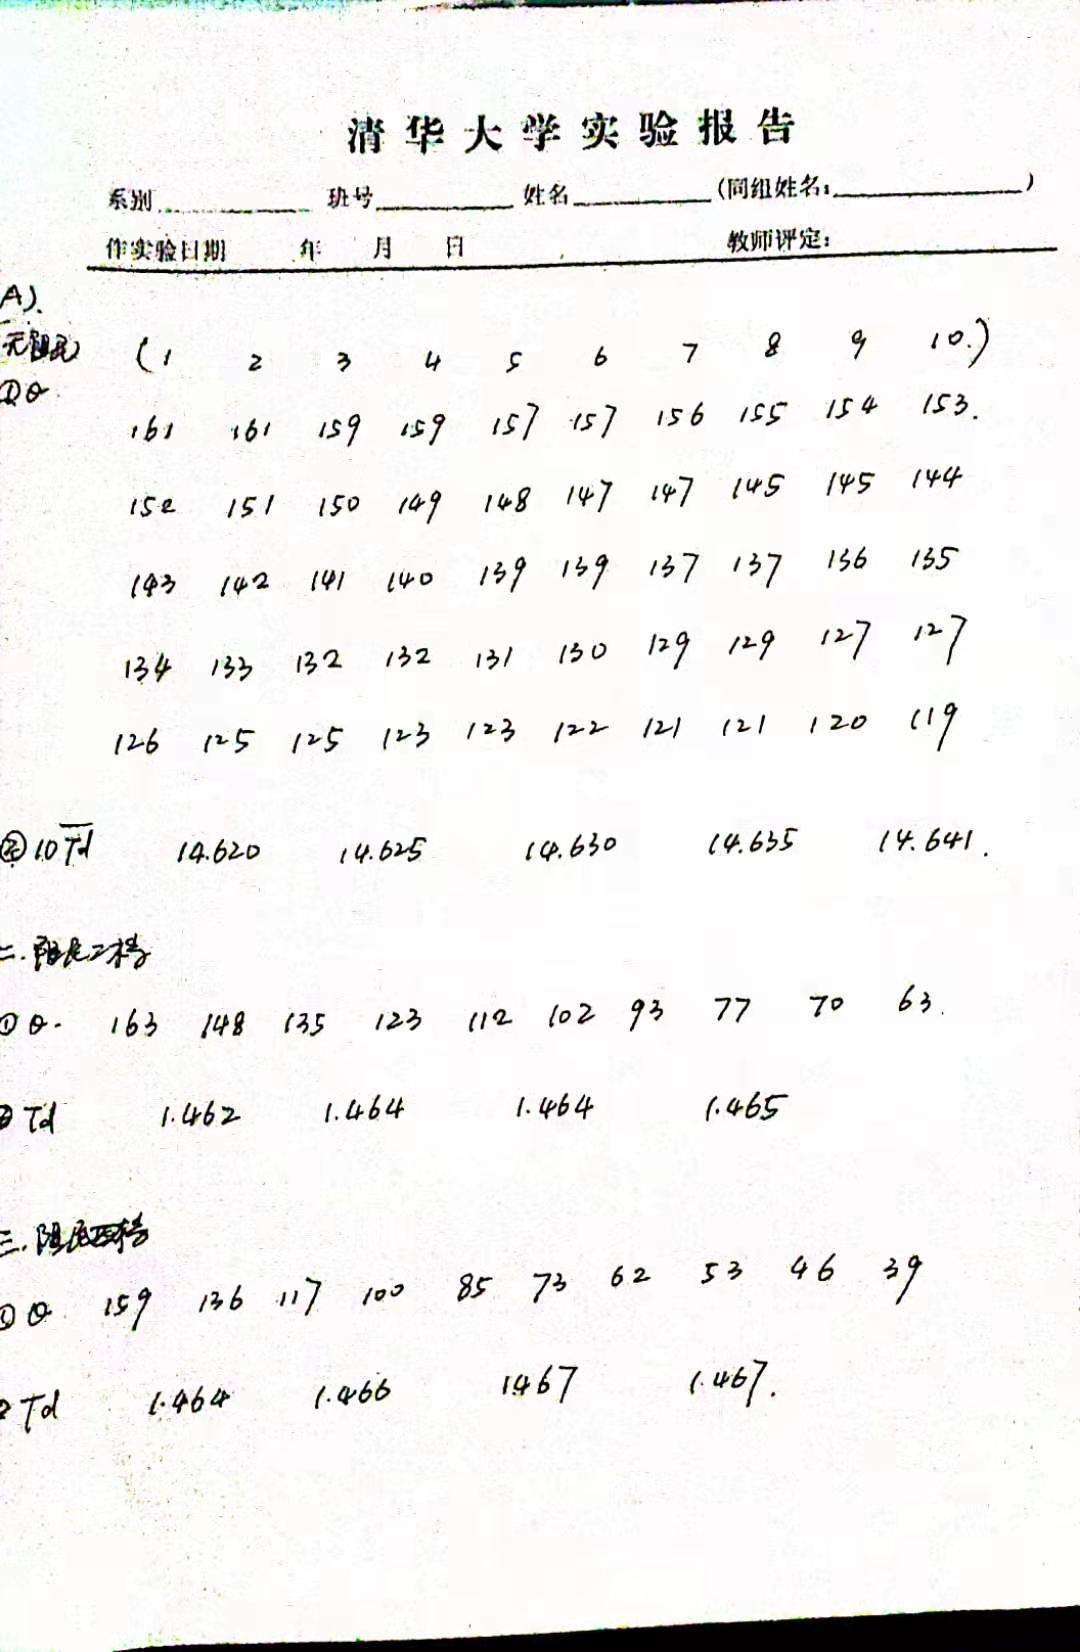 清华大学实验报告
系别 班号 姓名 (同组姓名: )
作实验日期 年 月 日 教师评定:
A).
无阻尼) (1 2 3 4 5 6 7 8 9 10.)
①θ
161 161 159 159 157 157 156 155 154 153.
152 151 150 149 148 147 147 145 145 144
143 142 141 140 139 139 137 137 136 135
134 133 132 132 131 130 129 129 127 127
126 125 125 123 123 122 121 121 120 119
②10Td 14.620 14.625 14.630 14.635 14.641.
二.阻尼二档
①θ. 163 148 135 123 112 102 93 77 70 63.
②Td 1.462 1.464 1.464 1.465
三.阻尼 档
①θ 159 136 117 100 85 73 62 53 46 39
2 Td 1.464 1.466 1467 1.467.